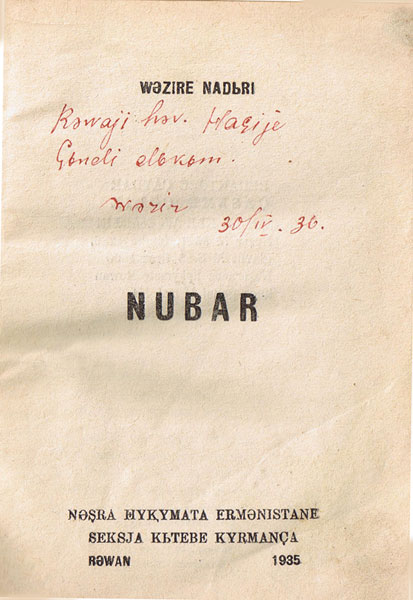 WƏZIRE NADЬRI
Kəwaji həv. Haçije
Çьndi dьkьm.
Wəzir
30/IV. 36.
NUBAR
NƏŞRA HYQYMATA ERMƏNISTANE
SEKSJA KЬTEBE KYRMANÇA
RƏWAN 1935